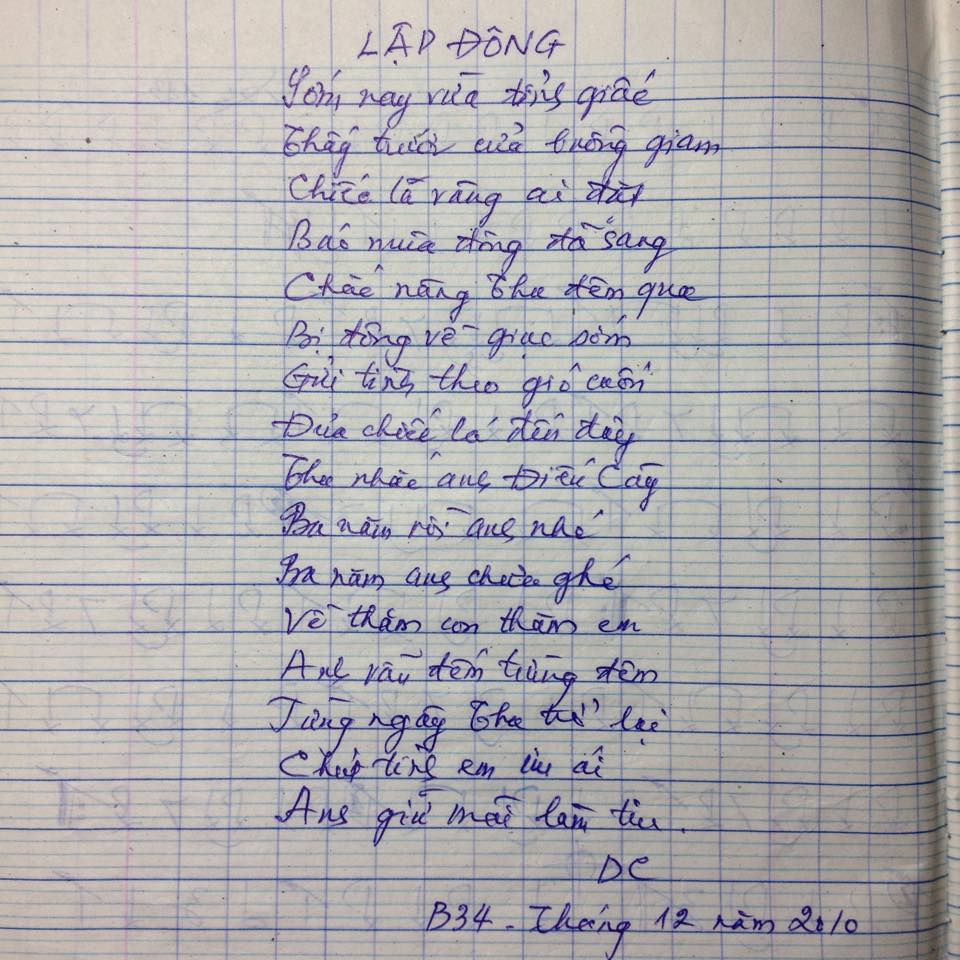 LẬP ĐÔNG
Sớm nay vừa tỉnh giấc
Thấy trước cửa buồng giam
Chiếc lá vàng ai đặt
Báo mùa đông đã sang
Chắc nàng Thu đêm qua
Bị đông về giục sớm
Gửi tình theo gió cuốn
Đưa chiếc lá đến đây
Thu nhắc anh Điếu Cày
Ba năm rồi anh nhé
Ba năm anh chưa ghé
Về thăm con thăm em
Anh vẫn đếm từng đêm
Từng ngày Thu trở lại
Chút tình em ưu ái
Anh giữ mãi làm tin.
DC
B34 - Tháng 12 năm 2010